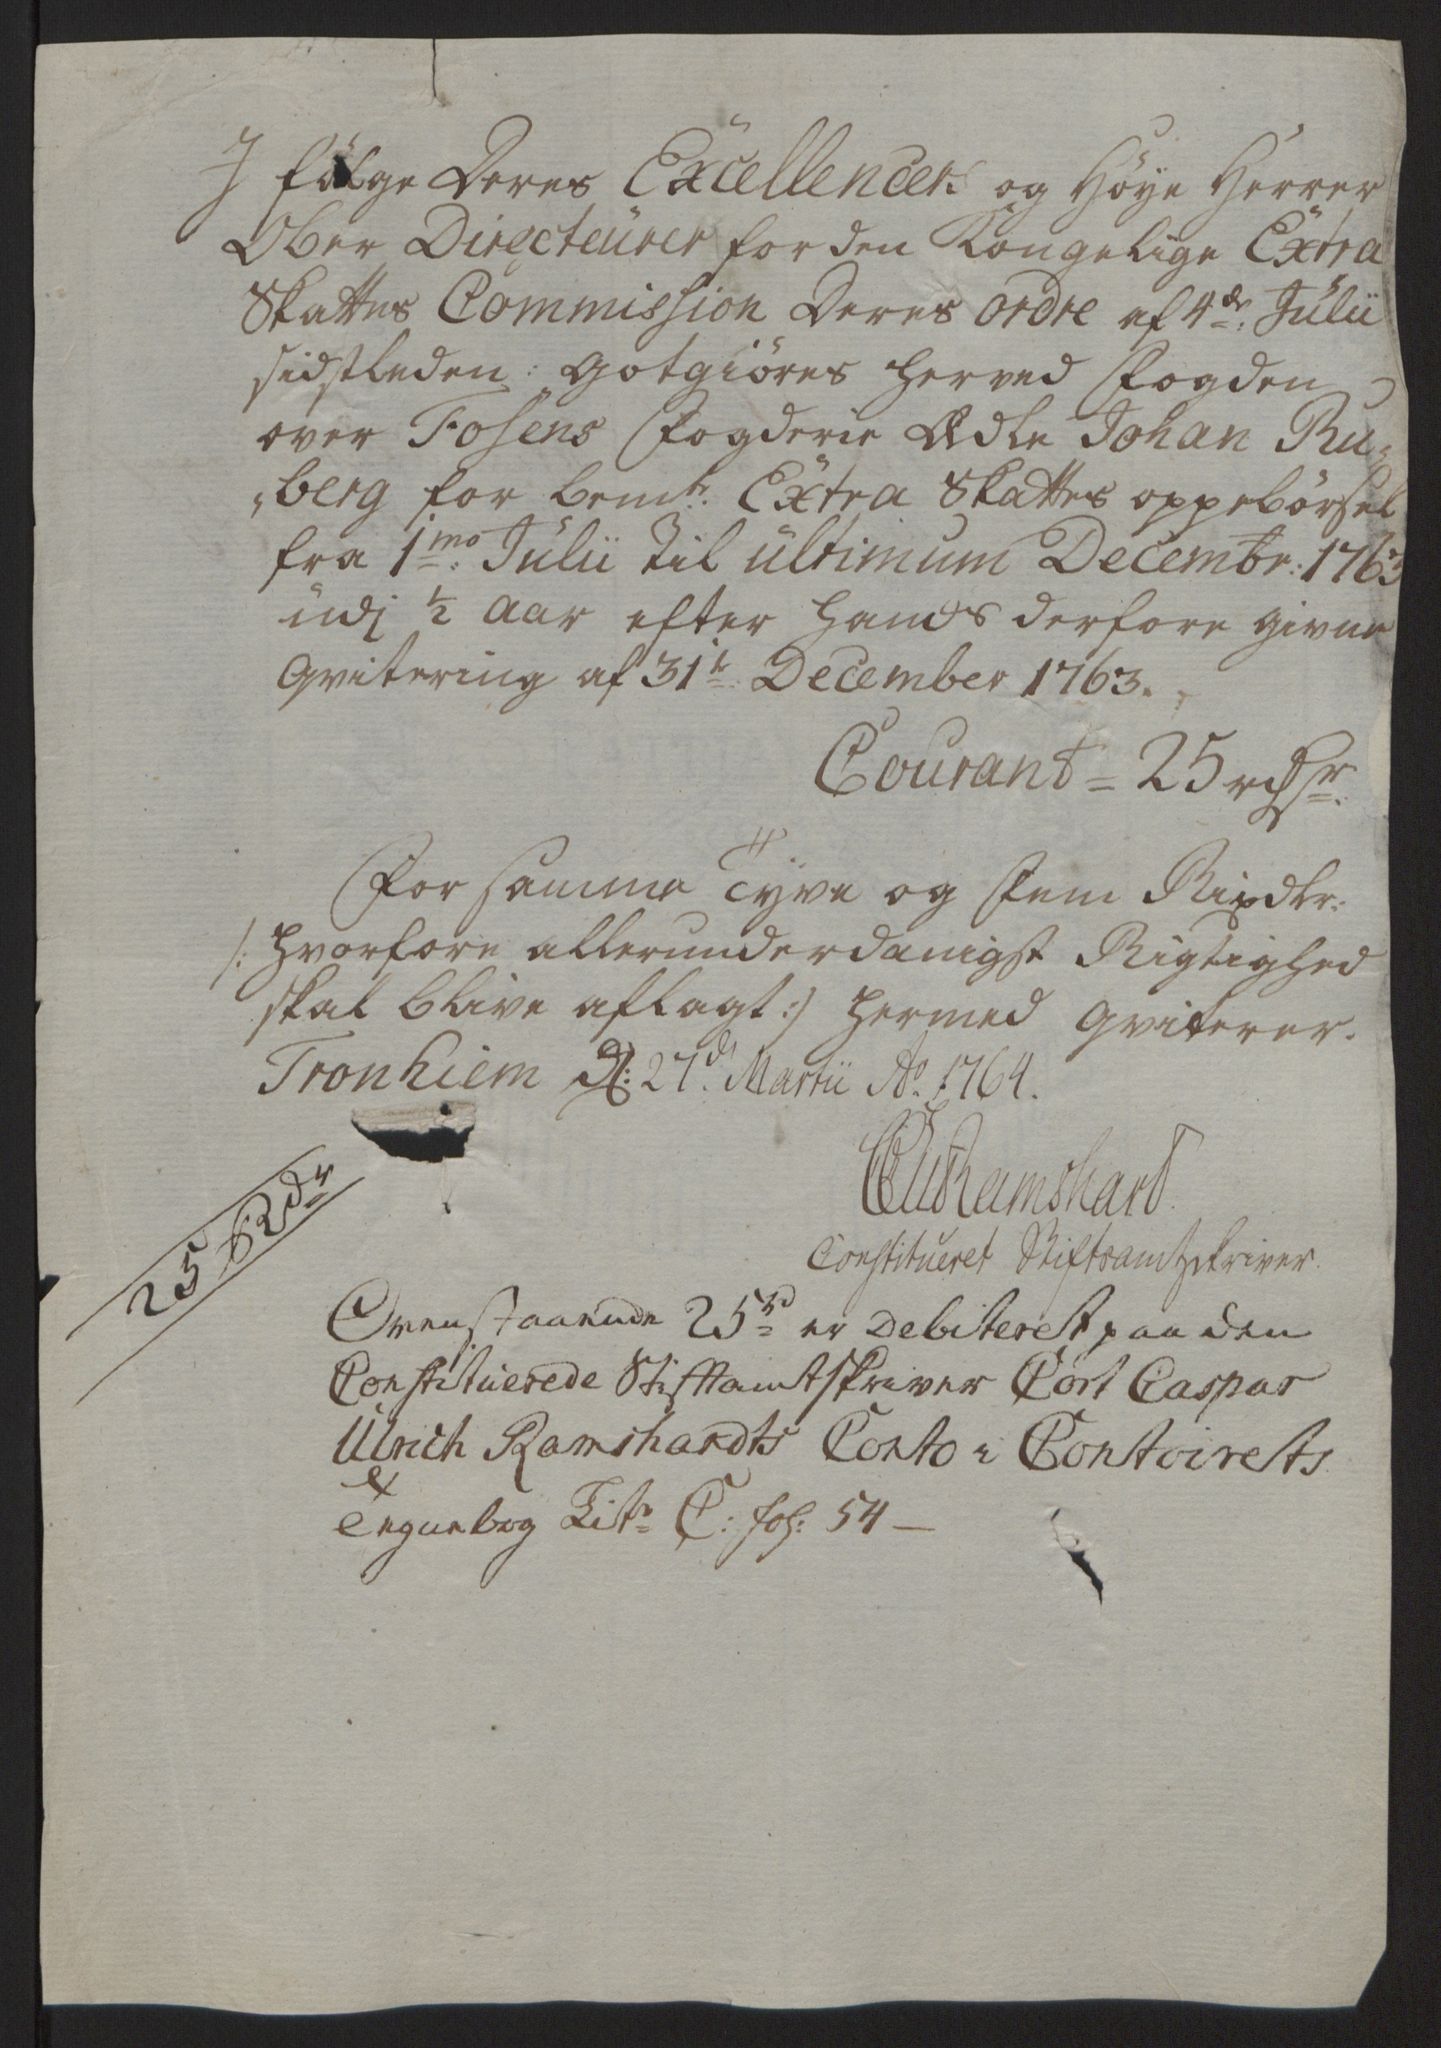 I følge Deres Excellencers og Høye Herrer
Ober Directeurer for den Kongelige Extra
Skattes Commission Deres ordre af 4de: Julii
sidstleden: gotgiöres herved Fogden
over Fosens Fogderie Ædle Johan Ru-
berg for bemte: Extra Skattes oppebörsel
fra 1mo: Julii til ultimum Decembr: 1763
udj 1/2 aar efter hands derfore givne
Qvitering af 31te December 1763.
Courant = 25 rdr.
For samme Tÿve og Fem Rixdlr:
/: hvorfore allerunderdanigst Rigtighed
skal blive aflagt :/ hermed qviterer.
Tronhiem D: 27de Martii Ao. 1764.
CCU Ramshard
Constitueret Stiftsamtskriver.
25 Rdr
Ovenstaaende 25rd er Debiteret paa den
Constituerede Stiftamtskriver Cort Caspar
Ulrich Ramshardts Conto i Contoirets
Regnebog Litr C: fol: 54 —